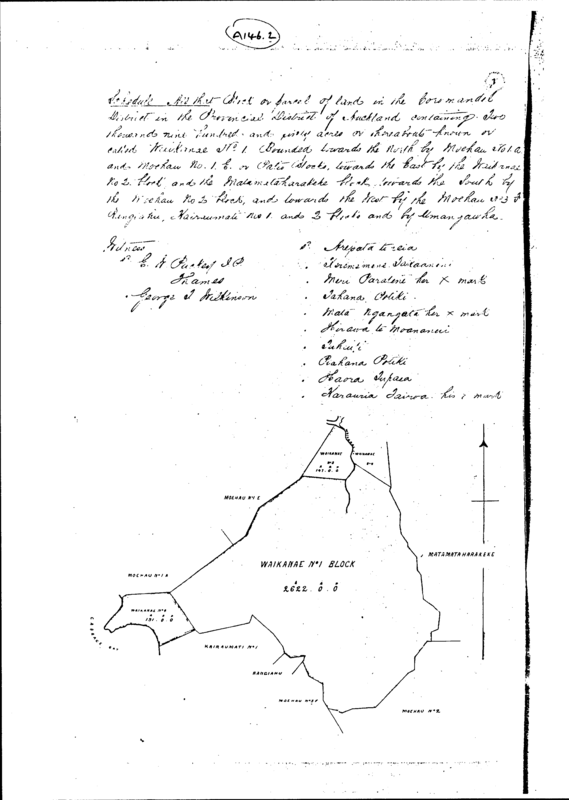 A146.2
Schedule All that Block or parcel of land in the Coromandel
District in the Provincial District of Auckland containing Two
thousand nine hundred and sixty acres or thereabouts known or
called Waikanae No 1. Bounded towards the North by Moehau No 1.A
and Moehau No. 1. E. or Blocks, towards the East by the Waikanae
No 2. Block and the Matamataharakeke block, towards the South by
the Moehau No 2 block, and towards the West by the Moehau No 3
Rangiahu, Kairaumati No 1. and 2 Blocks and by Umangawha.
Witness
E. W Puckey J.P
Thames
George T Wilkinson
Arepata te
Meri Paratene her x mark
Tahana Poliki
Mata Ngangata her x mark
Hirawa te Moananui
Pirahana Poliki
Haora Tupaea
Karauria Tairoa his x mark
WAIKANAE
No 3
A. R. P.
141. 0. 0
WAIKANAE
MOEHAU No 1 E
MATAMATAHARAKEKE
WAIKANAE No 1 BLOCK
A. R. P.
2622. 0. 0
MOEHAU No 1 A
WAIKANAE
A. R. P.
191. 0. 0
KAIRAUMATI No 1
RANGIAHU
MOEHAU
MOEHAU No 2